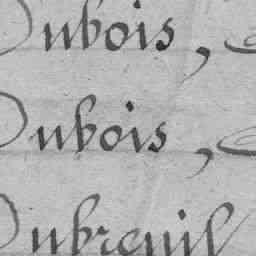 Dubois,
Dubois,
Dubreuil